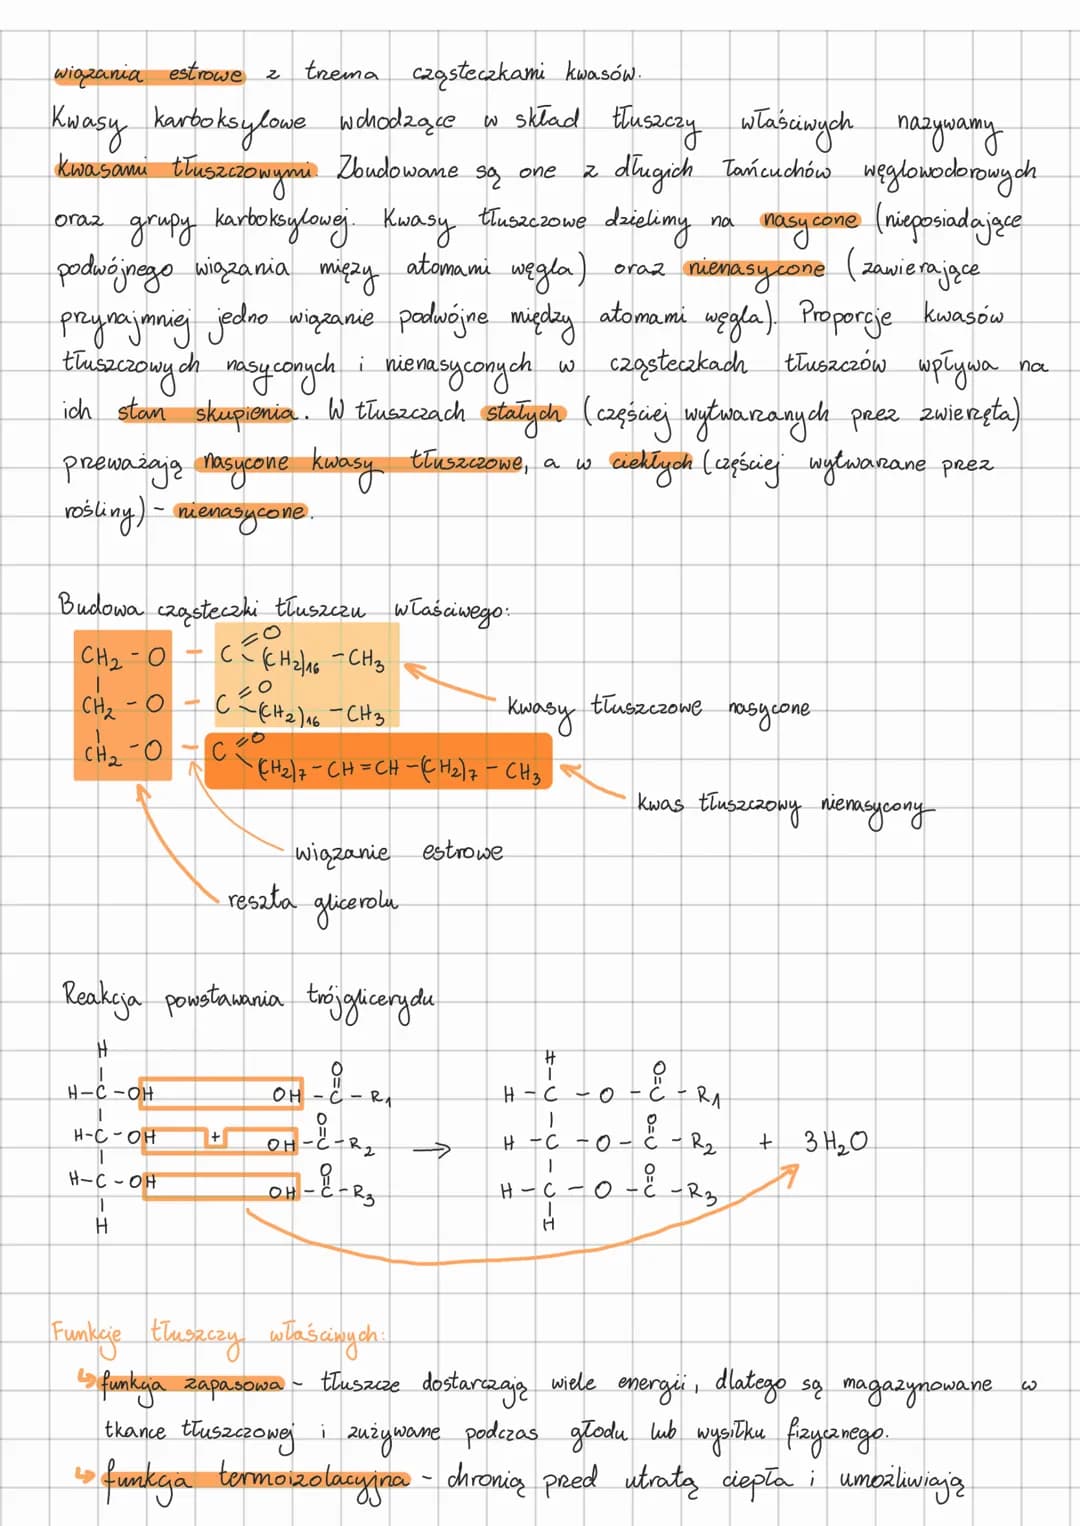 wiązania estrowe z trzema cząsteczkami kwasów.
Kwasy karboksylowe wchodzące w skład tłuszczy właściwych nazywamy
kwasami tłuszczowymi. Zbudowane są one z długich łańcuchów węglowodorowych
oraz grupy karboksylowej. Kwasy tłuszczowe dzielimy na nasycone (nieposiadające
podwójnego wiązania mięzy atomami węgla) oraz nienasycone (zawierające
przynajmniej jedno wiązanie podwójne między atomami węgla). Proporcje kwasów
tłuszczowych nasyconych i nienasyconych w cząsteczkach tłuszczów wpływa na
ich stan skupienia. W tłuszczach stałych (częściej wytwarzanych przez zwierzęta)
przeważają nasycone kwasy tłuszczowe, a w ciekłych (częściej wytwarzane przez
rośliny) - nienasycone.
Budowa cząsteczki tłuszczu właściwego:
CH₂ - O - C =O (CH₂)₁₆ - CH₃
CH₂ - O - C =O (CH₂)₁₆ - CH₃
kwasy tłuszczowe nasycone
CH₂ - O - C =O (CH₂)₇ - CH = CH - (CH₂)₇ - CH₃
kwas tłuszczowy nienasycony
wiązanie estrowe
reszta glicerolu
Reakcja powstawania trójglicerydu
H H
O O
H-C-OH OH - C - R₁ H - C - O - C - R₁
O O
H-C-OH + OH - C - R₂ → H - C - O - C - R₂ + 3 H₂O
O O
H-C-OH OH - C - R₃ H - C - O - C - R₃
H H
Funkcje tłuszczy właściwych:
↳ funkcja zapasowa - tłuszcze dostarczają wiele energii, dlatego są magazynowane w
tkance tłuszczowej i zużywane podczas głodu lub wysiłku fizycznego.
↳ funkcja termoizolacyjna - chronią przed utratą ciepła i umożliwiają